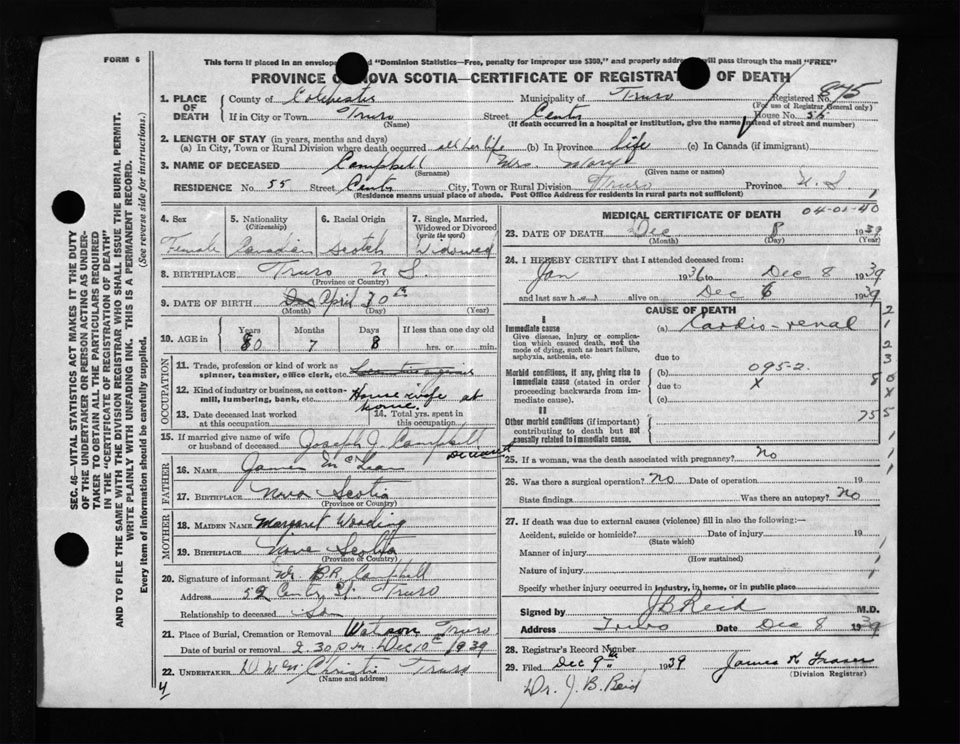 FORM 6
This form if placed in an envelope marked "Dominion Statistics—Free, penalty for improper use $300," and properly addressed will pass through the mail "FREE"
PROVINCE OF NOVA SCOTIA—CERTIFICATE OF REGISTRATION OF DEATH
1. PLACE OF DEATH
County of Colchester Municipality of Truro Registered No. 875
(For use of Registrar General only)
If in City or Town Truro Street Centre House No. 55
(Name) (If death occurred in a hospital or institution, give the name instead of street and number)
2. LENGTH OF STAY (in years, months and days)
(a) In City, Town or Rural Division where death occurred all her life (b) In Province life (c) In Canada (if immigrant)
3. NAME OF DECEASED Campbell Mrs. Mary
(Surname) (Given name or names)
RESIDENCE No. 55 Street Centre City, Town or Rural Division Truro Province N.S.
(Residence means usual place of abode. Post Office Address for residents in rural parts not sufficient)
4. Sex
Female
5. Nationality
(Citizenship)
Canadian
6. Racial Origin
Scotch
7. Single, Married, Widowed or Divorced
(write the word)
Widowed
8. BIRTHPLACE Truro N S.
(Province or Country)
9. DATE OF BIRTH Dec April 30th
(Month) (Day) (Year)
10. AGE in
Years Months Days If less than one day old
80 7 8 hrs. or min.
OCCUPATION
11. Trade, profession or kind of work as
spinner, teamster, office clerk, etc.
12. Kind of industry or business, as cotton-
mill, lumbering, bank, etc. House wife at home.
13. Date deceased last worked
at this occupation
14. Total yrs. spent in
this occupation
15. If married give name of wife
or husband of deceased Joseph J. Campbell
FATHER
16. NAME James McLean
17. BIRTHPLACE Nova Scotia
(Province or Country)
MOTHER
18. MAIDEN NAME Margaret Wooding
19. BIRTHPLACE Nova Scotia
(Province or Country)
20. Signature of informant B.A. Campbell
Address 52 Centre St. Truro
Relationship to deceased Son
21. Place of Burial, Cremation or Removal Watson Truro
Date of burial or removal 2.30 p.m. Dec 10th 1939
22. UNDERTAKER Christie Truro
(Name and address)
MEDICAL CERTIFICATE OF DEATH
04-01-40
23. DATE OF DEATH Dec 8 1939
(Month) (Day) (Year)
24. I HEREBY CERTIFY that I attended deceased from:
Jan 1936 to Dec 8 1939
and last saw her alive on Dec 6 1939
CAUSE OF DEATH
I
Immediate cause
Give disease, injury or complication which caused death, not the mode of dying, such as heart failure, asphyxia, asthenia, etc.
(a) Cardio-renal
due to
Morbid conditions, if any, giving rise to immediate cause (stated in order proceeding backwards from immediate cause).
(b) 095-2.
due to X
(c)
II
Other morbid conditions (if important) contributing to death but not causally related to immediate cause.
25. If a woman, was the death associated with pregnancy? No
26. Was there a surgical operation? No Date of operation 19
State findings Was there an autopsy? No
27. If death was due to external causes (violence) fill in also the following:—
Accident, suicide or homicide? Date of injury 19
(State which)
Manner of injury
(How sustained)
Nature of injury
Specify whether injury occurred in industry, in home, or in public place
Signed by J B Reid M.D.
Address Truro Date Dec 8 1939
28. Registrar's Record Number
29. Filed Dec 9th 1939 James K Fraser
(Division Registrar)
Dr. J. B. Reid
SEC. 46—VITAL STATISTICS ACT MAKES IT THE DUTY
OF THE UNDERTAKER OR PERSON ACTING AS UNDER-
TAKER TO OBTAIN ALL THE PARTICULARS REQUIRED
IN THE "CERTIFICATE OF REGISTRATION OF DEATH"
AND TO FILE THE SAME WITH THE DIVISION REGISTRAR WHO SHALL ISSUE THE BURIAL PERMIT.
WRITE PLAINLY WITH UNFADING INK. THIS IS A PERMANENT RECORD.
Every item of information should be carefully supplied. (See reverse side for instructions.)